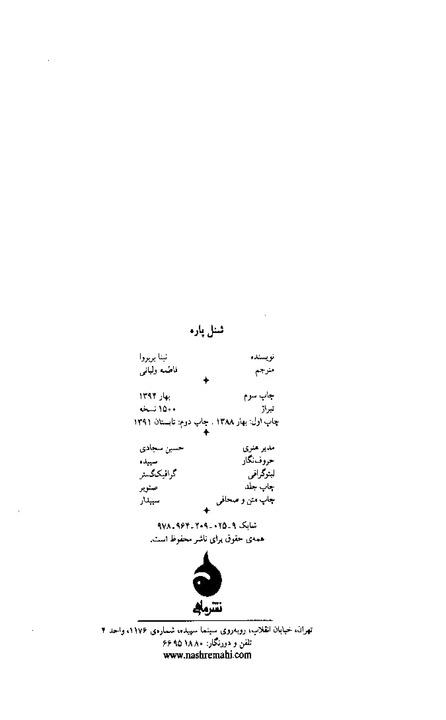 شنل پاره
نویسنده نینا بربروا
مترجم فاطمه ولیانی
چاپ سوم بهار ۱۳۹۴
تیراژ ۱۵۰۰ نسخه
چاپ اول: بهار ۱۳۸۸ . چاپ دوم: تابستان ۱۳۹۱
مدیر هنری حسین سجادی
حروف‌نگار سپیده
لیتوگرافی گرافیک‌گستر
چاپ جلد صنوبر
چاپ متن و صحافی سپیدار
شابک ۹-۰۲۵-۲۰۹-۹۶۴-۹۷۸
همه‌ی حقوق برای ناشر محفوظ است.
نشرماهی
تهران، خیابان انقلاب، روبه‌روی سینما سپیده، شماره‌ی ۱۱۷۶، واحد ۴
تلفن و دورنگار: ۶۶ ۹۵ ۱۸ ۸۰
www.nashremahi.com